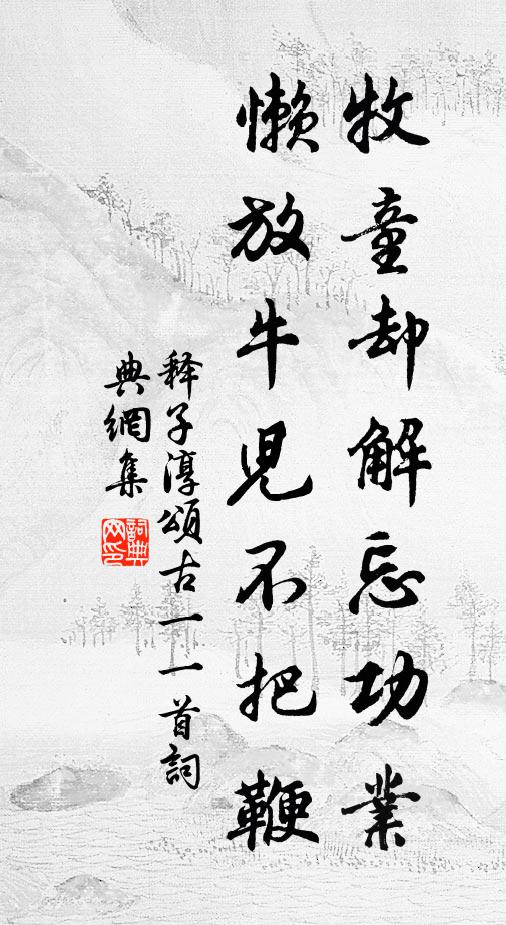 牧童却解忘功業
懶放牛児不把鞭
释子淳頌古一一首詞
典網集
詞典
网印